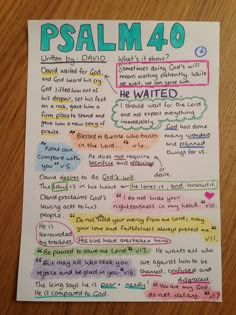 PSALM 40
Written by: DAVID
What's it about?
David waited for God
and God heard his cry
God lifted him out of
his despair, set his feet
on a rock, gave him a
firm place to stand and
gave him a new song of
praise.
Sometimes doing God's will
means waiting patiently. While
we wait, we can serve him.
HE WAITED
I should wait for the Lord
and not expect anything
immediately.
God has done
many wonders
and planned
things for v5.
"Blessed is the one who trusts
in the Lord..." v4
"None can
compare with
you" v5
He does not require
sacrifice and offering
or
desire.
David desires to do God's will
The law is in his heart
David proclaims God's
saving acts to his
people.
"I do not hide your
righteousness in my heart" v10
"Do not hold your mercy from me Lord; may
your love and faithfulness always protect me"
v11
He is
surrounded by
troubles.
His sins have overtaken him
"Be pleased to save me Lord" v13
He wants all who
are against him to be
shamed, confused and
disgraced.
"But may all who seek you
rejoice and be glad in you" v16
The king says he is poor + needy
He is compared to God.
"You are my God,
do not delay." v17